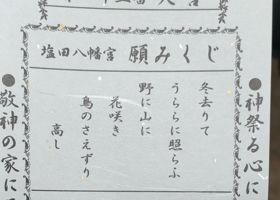 塩田八幡宮 願みくじ
冬去りて
うららに照らふ
野に山に
花咲き
鳥のさえずり
高し
●神祭る心に
●敬神の家に